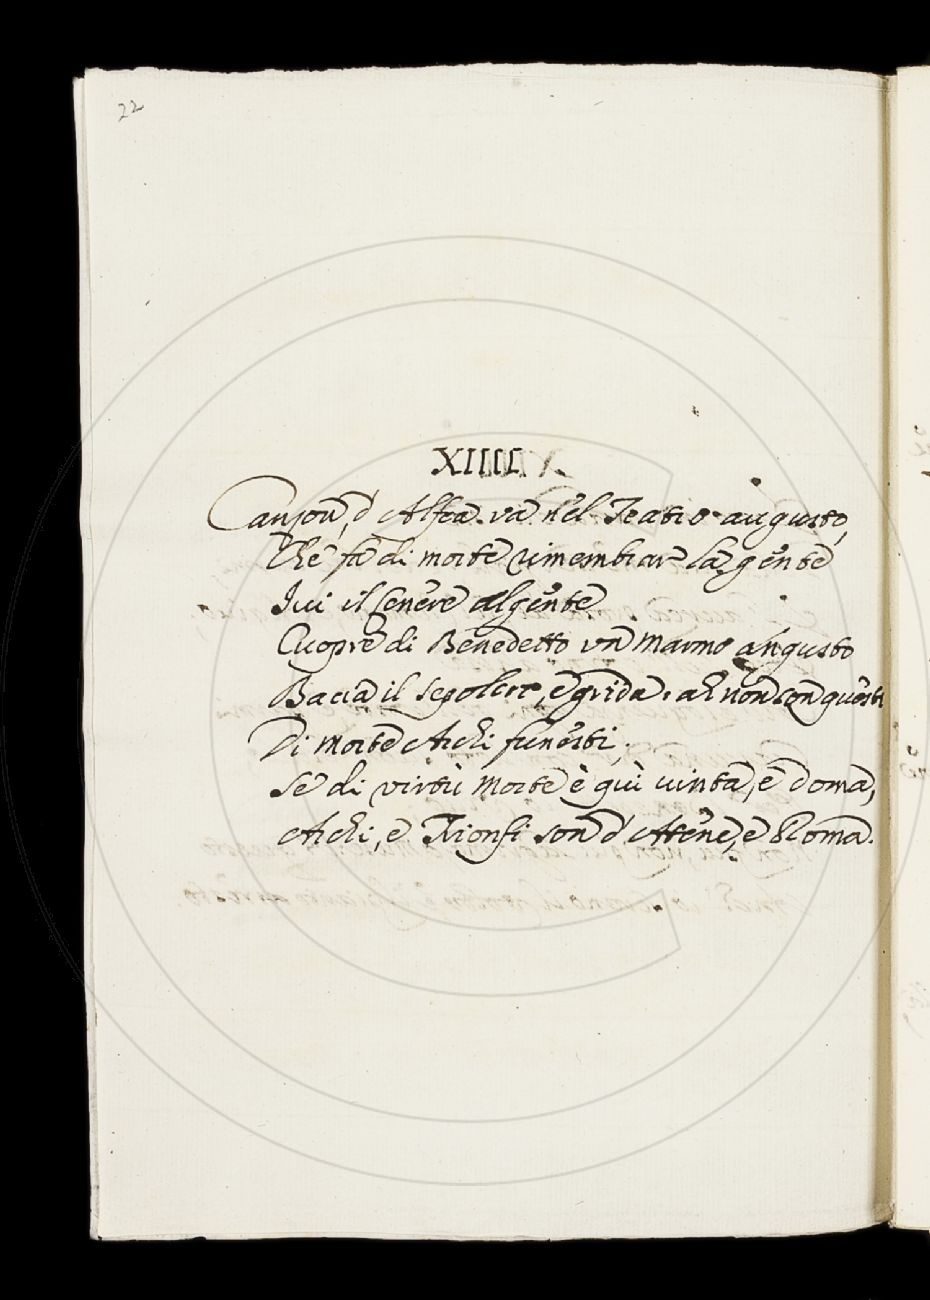 22
XIIII
Canzon, d'Alfea va nel Teatro augusto,
Che fa di morte rimembrar la gente
Iui il cenere algente
Cuopre di Benedetto vn Marmo angusto
Bacia il sepolcro, e grida. ah non son questi
Di morte Archi funesti,
Se di virtù Morte è qui uinta, e doma,
Archi, e Trionfi son d'Attene, e Roma.